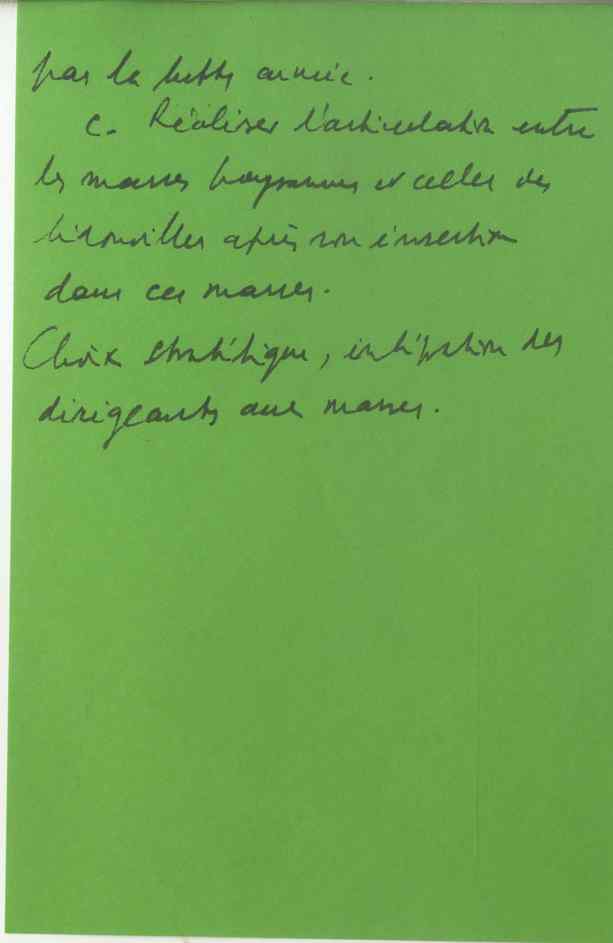 par la lutte armée.
c. Réaliser l'articulation entre
les masses paysannes et celles des
bidonvilles après son insertion
dans ces masses.
Choix stratégique, intégration des
dirigeants aux masses.